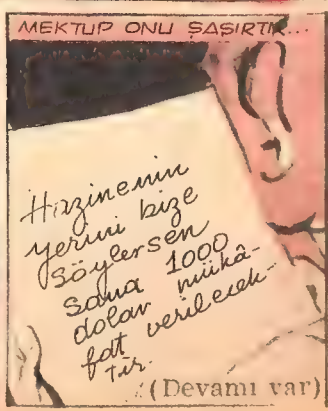 MEKTUP ONU ŞAŞIRTIR...
Hazinenin
yerini bize
söylersen
sana 1000
dolar mükâ-
fat verilecek-
tir.
(Devamı var)